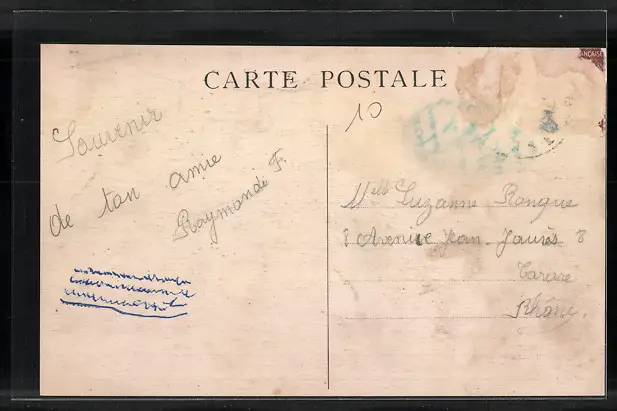 CARTE POSTALE
10
Souvenir
de ton amie
Raymonde F.
Melle Suzanne Rongue
8 Avenue Jean-Jaurès 8
Tarare
Rhône.